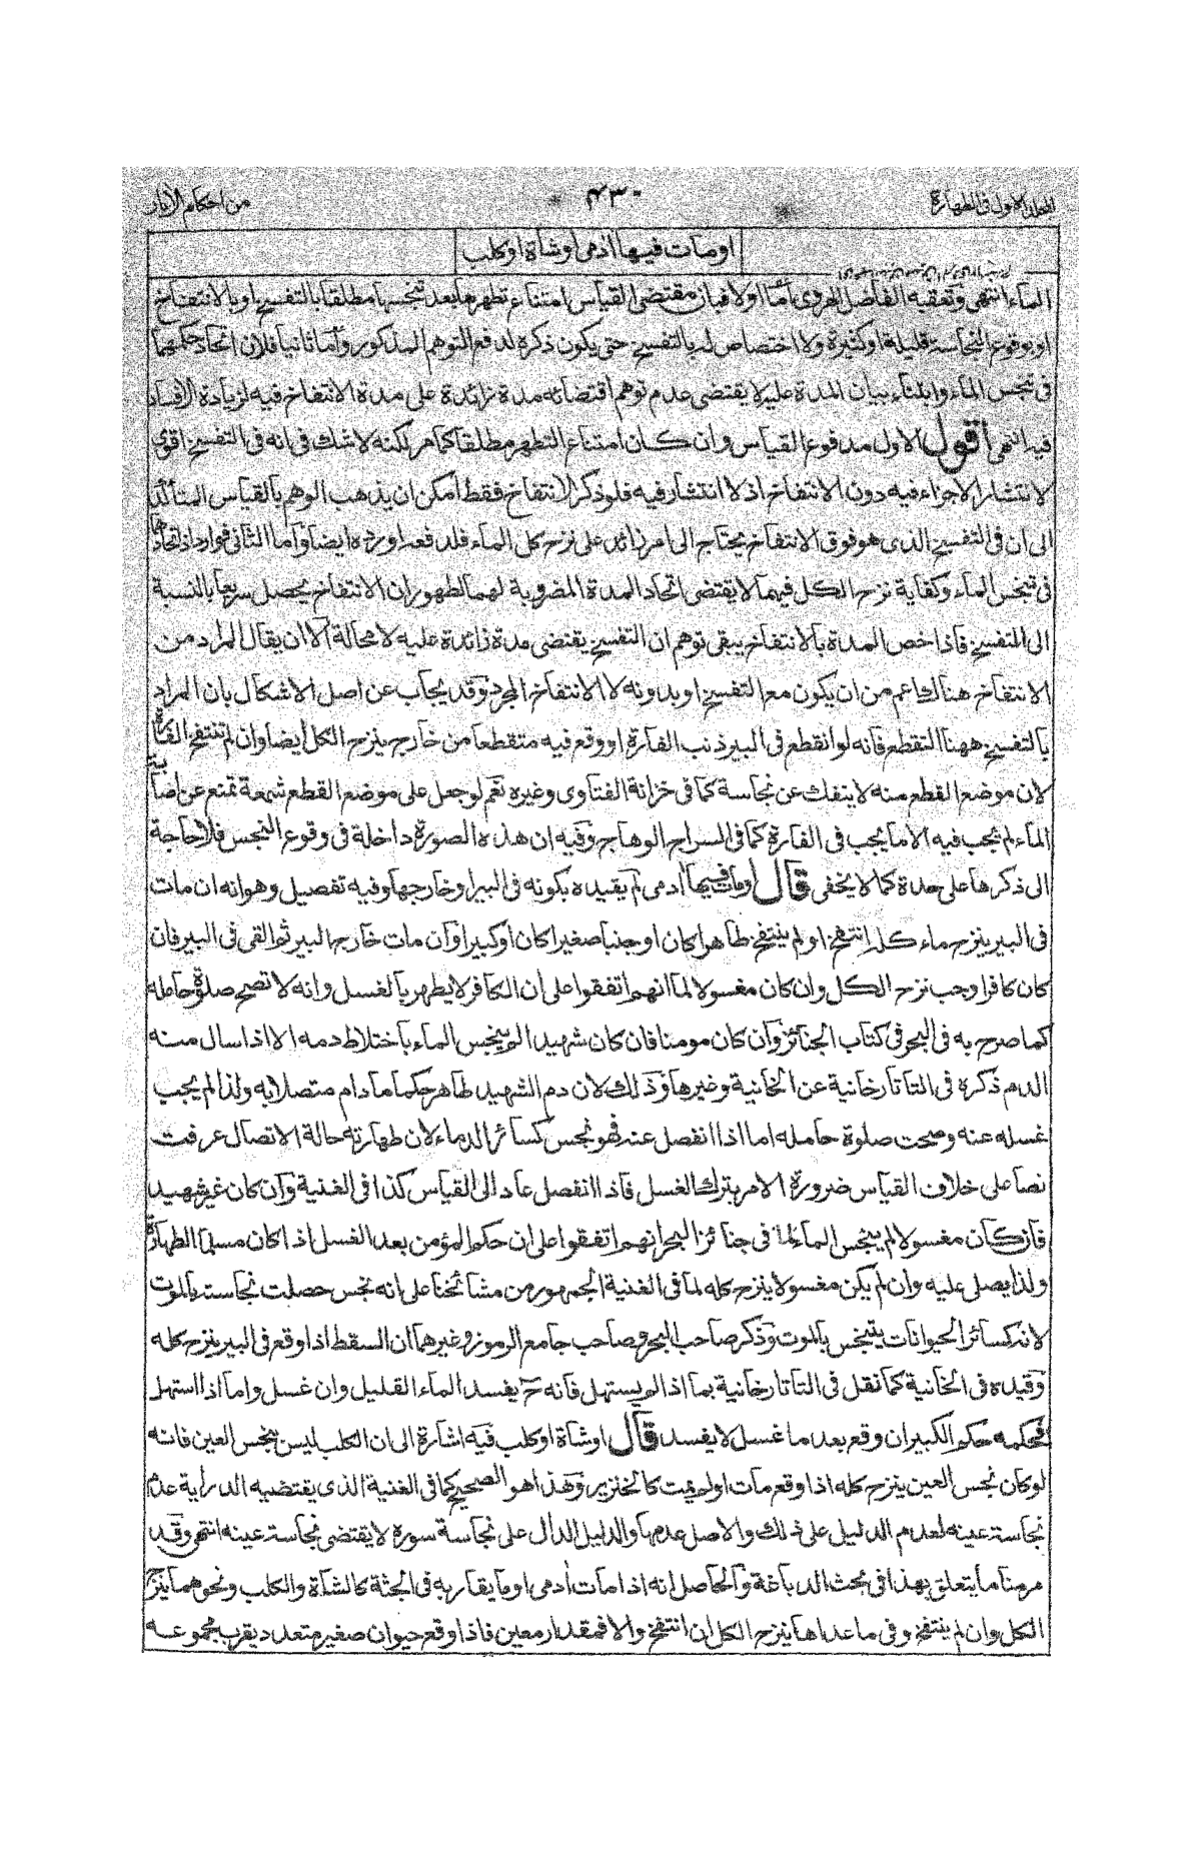 المجلد الاول فى الطهارة
٤٣٠
من احكام الآبار
او مات فيها ادمى او شاة او كلب
الماء انتهى وتعقبه الفاضل الهروى بأما اولا فبان مقتضى القياس امتناع تطهرها بعد تنجسها مطلقا بالتفسخ او بالانتفاخ
او بوقوع النجاسة قليلة او كثيرة ولا اختصاص له بالتفسخ حتى يكون ذكره لدفع التوهم المذكور وأما ثانيا فلان اتحاد حكمهما
فى تنجس الماء وابتناء بيان المدة عليه لا يقتضى عدم توهم اقتضائه مدة زائدة على مدة الانتفاخ فيه لزيادة الافساد
فيه انتهى أقول الاول مدفوع القياس وان كان امتناع التطهر مطلقا كما مر لكنه لا شك فى انه فى التفسخ اقوى
لانتشار الاجزاء فيه دون الانتفاخ اذ لا انتشار فيه فلو ذكر الانتفاخ فقط امكن ان يذهب الوهم بالقياس المتأكد
الى ان فى التفسخ الذى هو فوق الانتفاخ يحتاج الى امر زائد على نزح كل الماء فلدفعه اورده ايضا وأما الثانى فوارد اذ اتحادهما
فى تنجس الماء وكفاية نزح الكل فيهما لا يقتضى اتحاد المدة المضروبة لهما لظهور ان الانتفاخ يحصل سريعا بالنسبة
الى التفسخ فاذا خص المدة بالانتفاخ يبقى توهم ان التفسخ يقتضى مدة زائدة عليه لا محالة الا ان يقال المراد من
الانتفاخ هناك اعم من ان يكون مع التفسخ او بدونه لا الانتفاخ المجرد وقد يجاب عن اصل الاشكال بان المراد
بالتفسخ ههنا التقطع فانه لو انقطع فى البير ذنب الفارة او وقع فيه متقطعا من خارج ينزح الكل ايضا وان لم تنتفخ الفارة
لان موضع القطع منه لا ينفك عن نجاسة كما فى خزانة الفتاوى وغيره نعم لو جعل على موضع القطع شمعة تمنع عن اصابة
الماء لم يجب فيه الا ما يجب فى الفارة كما فى السراج الوهاج وفيه ان هذه الصورة داخلة فى وقوع النجس فلا حاجة
الى ذكرها على حدة كما لا يخفى قال او مات فيها ادمى لم يقيده بكونه فى البير او خارجها وفيه تفصيل وهو انه ان مات
فى البير ينزح ماءه كله انتفخ او لم ينتفخ طاهرا كان او جنبا صغيرا كان او كبيرا وان مات خارج البير ثم القى فى البير فان
كان كافرا وجب نزح الكل وان كان مغسولا لما انهم اتفقوا على ان الكافر لا يطهر بالغسل وانه لا تصح صلوة حامله
كما صرح به فى البحر فى كتاب الجنائز وان كان مومنا فان كان شهيدا لم ينجس الماء باختلاط دمه الا اذا سال منه
الدم ذكره فى التاتارخانية عن الخانية وغيرها وذلك لان دم الشهيد طاهر حكما ما دام متصلا به ولذا لم يجب
غسله عنه وصحت صلوة حامله اما اذا انفصل عنه فهو نجس كسائر الدماء لان طهارته حالة الاتصال عرفت
نصا على خلاف القياس ضرورة الامر بترك الغسل فاذا انفصل عاد الى القياس كذا فى الغنية وان كان غير شهيد
فان كان مغسولا لم ينجس الماء لما فى جنائز البحر انهم اتفقوا على ان حكم المؤمن بعد الغسل اذا كان مسلما الطهارة
ولذا يصلى عليه وان لم يكن مغسولا ينزح كله لما فى الغنية الجمهور من مشائخنا على انه نجس حصلت نجاسته بالموت
لانه كسائر الحيوانات يتنجس بالموت وذكر صاحب البحر وصاحب جامع الرموز وغيرهما ان السقط اذا وقع فى البير ينزح كله
وقيده فى الخانية كما نقل فى التاتارخانية بما اذا لم يستهل فانه ح يفسد الماء القليل وان غسل واما اذا استهل
فحكمه حكم الكبير ان وقع بعد ما غسل لا يفسد قال او شاة او كلب فيه اشارة الى ان الكلب ليس بنجس العين فانه
لو كان نجس العين ينزح كله اذا وقع مات او لم يمت كالخنزير وهذا هو الصحيح كما فى الغنية الذى يقتضيه الدراية عدم
نجاسة عينه لعدم الدليل على ذلك والاصل عدمها والدليل الدال على نجاسة سوره لا يقتضى نجاسة عينه انتهى وقد
مر منا ما يتعلق بهذا فى بحث الدباغة والحاصل انه اذا مات ادمى او ما يقاربه فى الجثة كالشاة والكلب ونحوهما ينزح
الكل وان لم ينتفخ وفى ما عداها ينزح الكل ان انتفخ والا فمقدار معين فاذا وقع حيوان صغير متعدد يقرب مجموعه